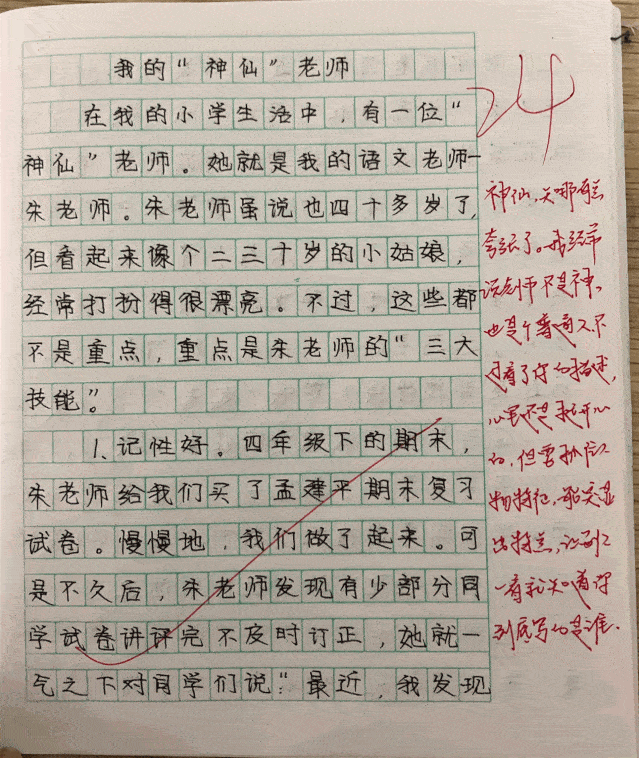 我的“神仙”老师
在我的小学生活中，有一位“
神仙”老师。她就是我的语文老师—
朱老师。朱老师虽说也四十多岁了，
但看起来像个二三十岁的小姑娘，
经常打扮得很漂亮。不过，这些都
不是重点，重点是朱老师的“三大
技能”。
1、记性好。四年级下的期末，
朱老师给我们买了孟建平期末复习
试卷。慢慢地，我们做了起来。可
是不久后，朱老师发现有少部分同
学试卷讲评完不及时订正，她就一
气之下对同学们说：“最近，我发现
24
神仙，
夸张了。我经常
说老师不是神，
也是个普通人，不
过看了你的描述，
心里还是挺开心
的，但要抓住人
物特征，突显
出特点，让别人
一看就知道你
到底写的是谁.